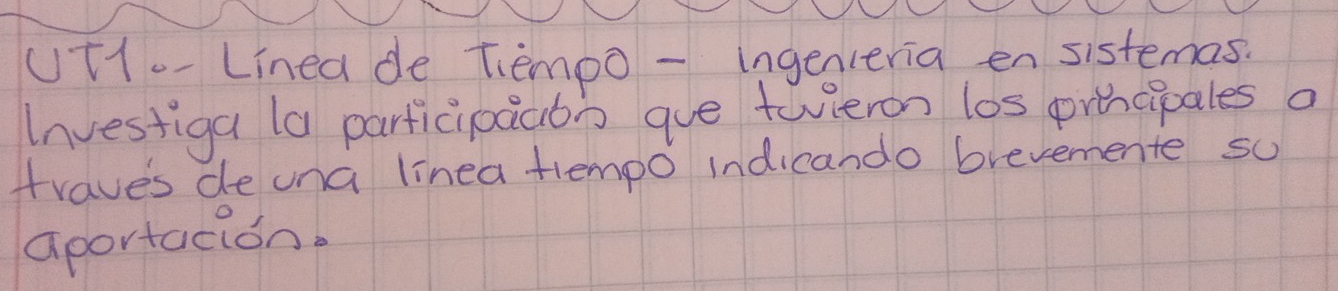 UT1.- Línea de Tiempo - Ingeniería en sistemas.
Investiga la participación que tuvieron los principales a
través de una línea tiempo indicando brevemente su
aportación.